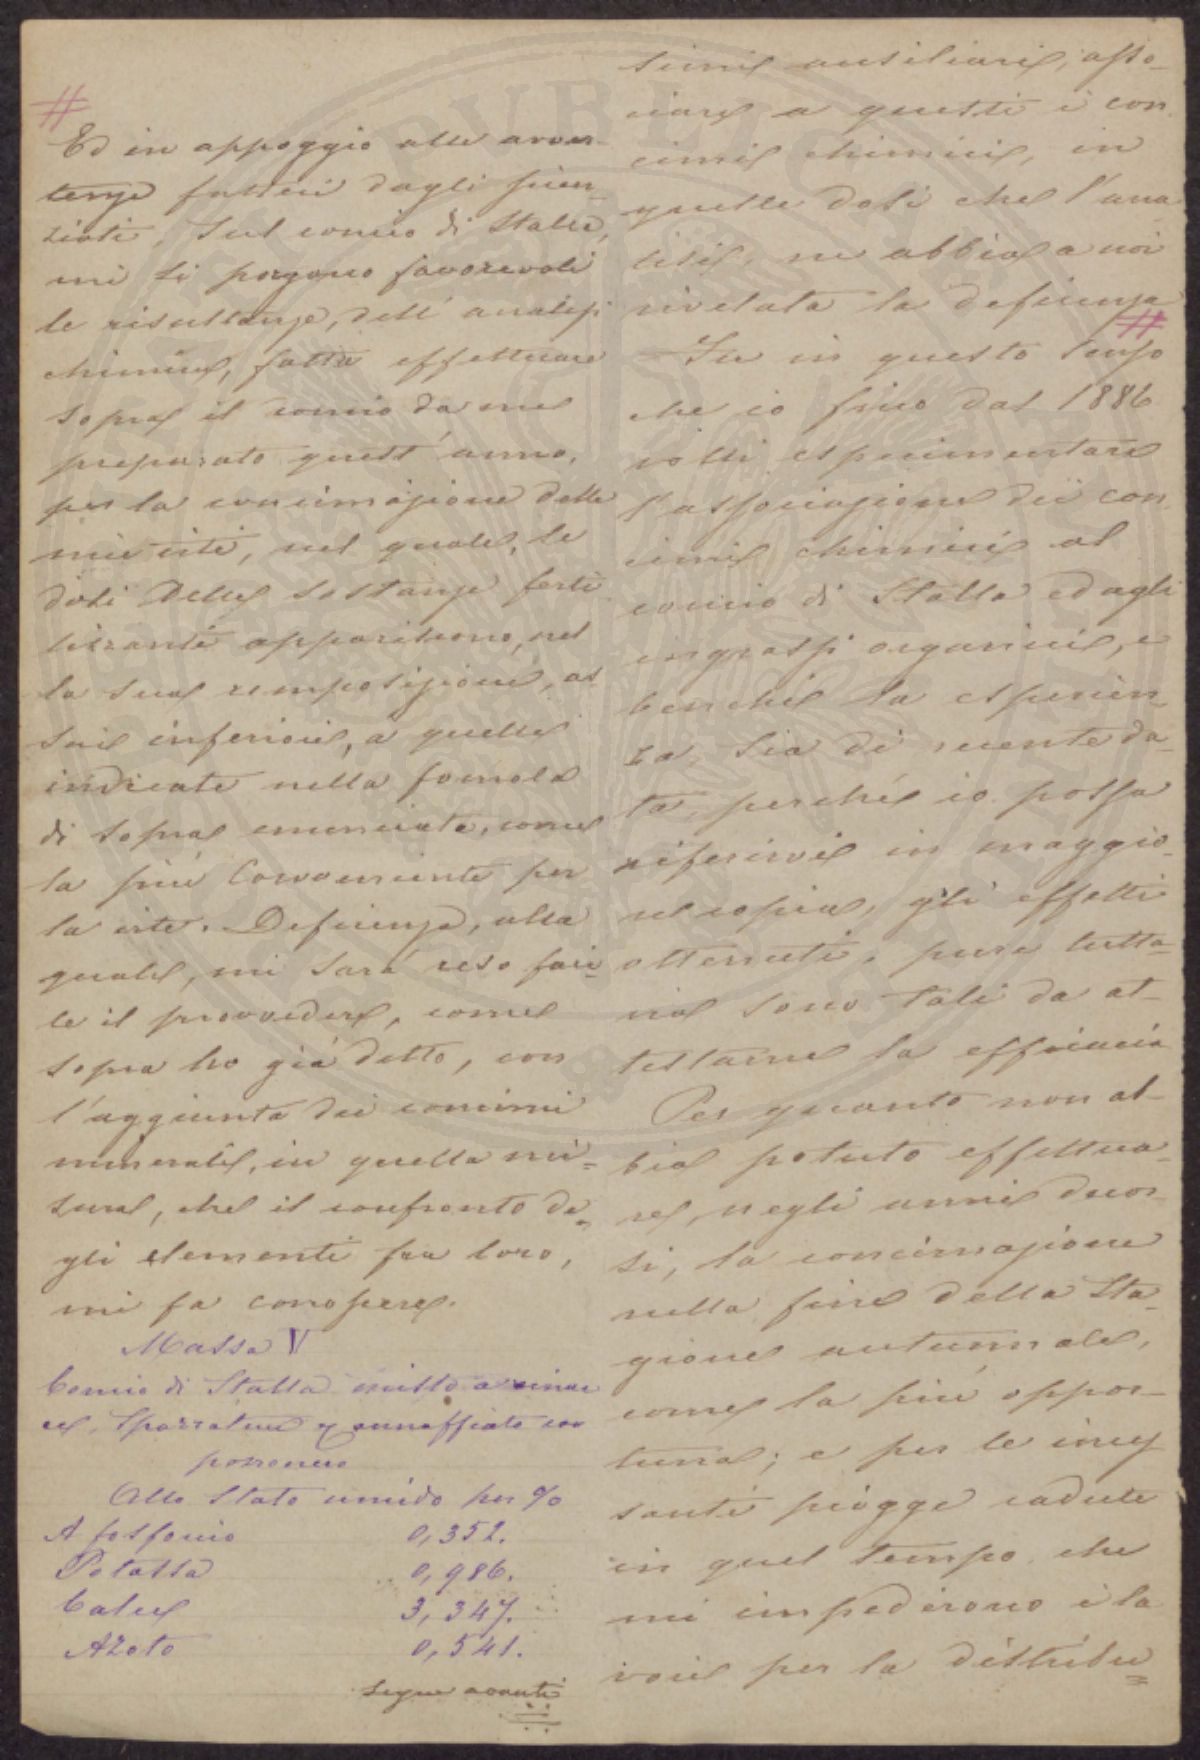 #
Ed in appoggio alle avver-
tenze fattevi dagli scien-
ziati, sul concio di Stalla,
mi si porgono favorevoli
le risultanze, dell' analisi
chimica, fatta effettuare
sopra il concio da me
preparato quest' anno,
per la concimazione delle
mie viti, nel quale, le
dosi delle sostanze ferti
lizzanti appariscono, nel
la sua composizione, as
sai inferiori, a quelle
indicate nella formola
di sopra enunciata, come
la più Conveniente per
la vite. Deficienza, alla
quale, mi sarà reso faci-
le il provvedere, come
sopra ho già detto, con
l'aggiunta dei concimi
minerali, in quella mi=
sura, che il confronto de=
gli elementi fra loro,
mi fa conoscere.
Massa V
Concio di Stalla misto a vinac
ce, Spazzature e annaffiato con
pozzonero
Allo Stato umido per %
A fosforico 0,352.
Potassa 0,986.
Calce 3,347.
Azoto 0,541.
segue avanti
simi ausiliari, asso-
ciare a questi i con
cimi chimici, in
quelle dosi che l'ana
lisi, ne abbia a noi
rivelata la deficienza
#
Fu in questo senso
che io fino dal 1886
volli esperimentare
l'associazione dei con
cimi chimici al
concio di Stalla ed agli
ingrassi organici, e
benchè la esperien-
za, sia di recente da-
ta, perchè io possa
riferirvi in maggio-
re copia, gli effetti
ottenuti, pure tutta-
via sono tali da at-
testarne la efficacia
Per quanto non ab-
bia potuto effettua-
re, negli anni decor-
si, la concimazione
nella fine della Sta-
gione autunnale,
come la più oppor-
tuna; e per le inces
santi piogge cadute
in quel tempo, che
mi impedirono i la
vori per la distribu=